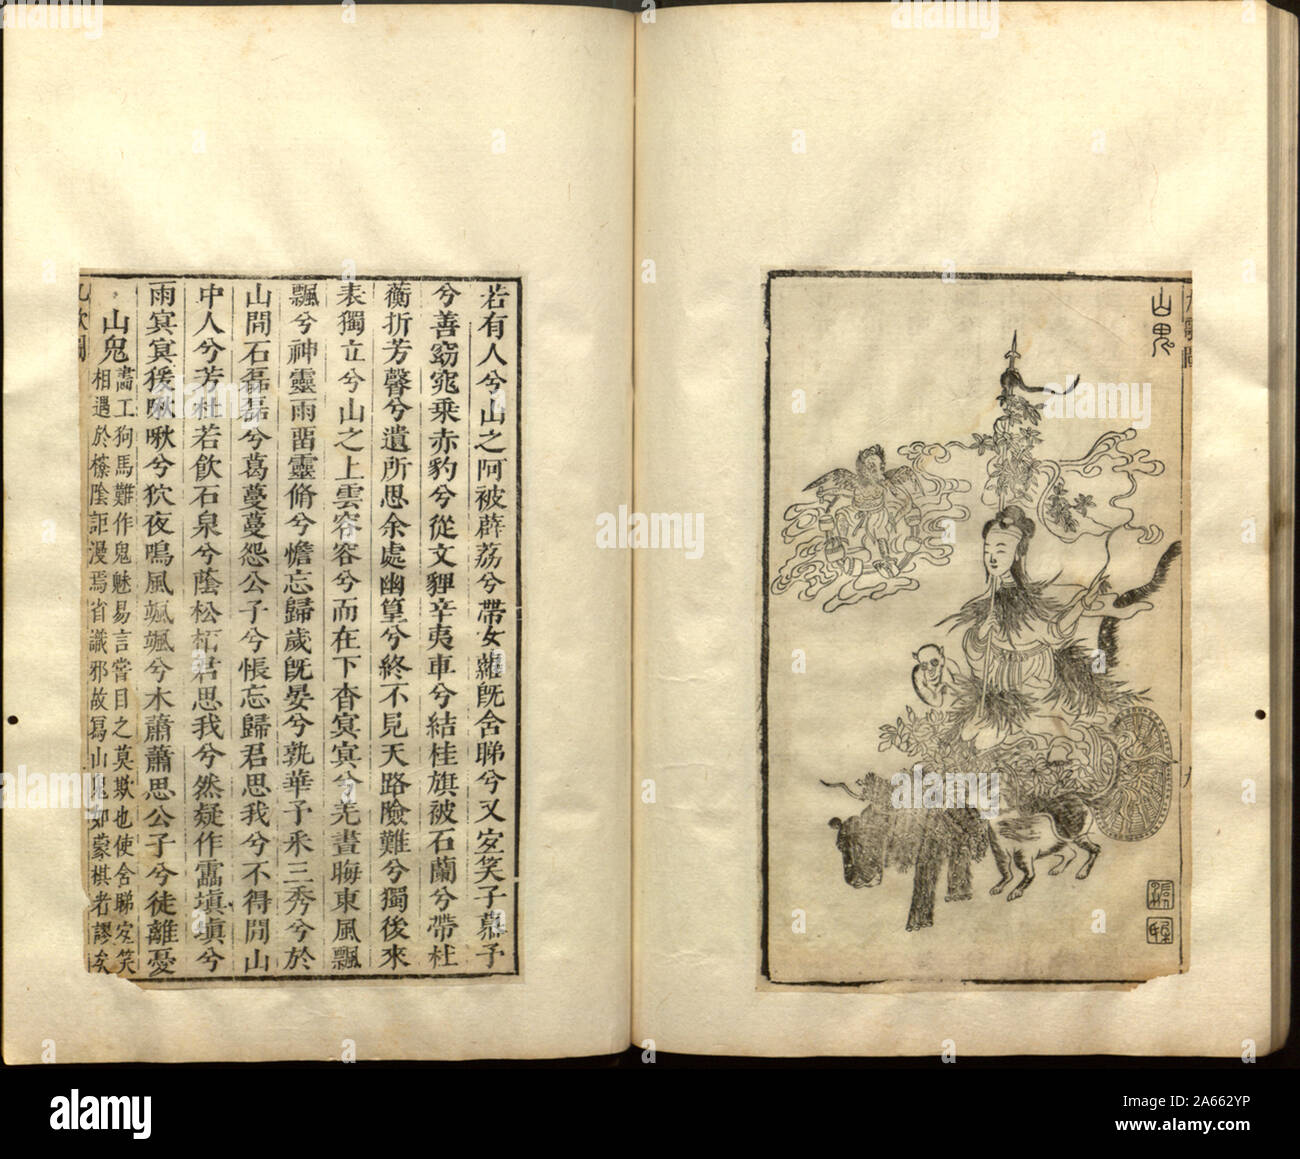 山鬼
九歌圖
九
若有人兮山之阿被薜荔兮帶女蘿旣含睇兮又宐笑子慕予
兮善窈窕乗赤豹兮從文貍辛夷車兮結桂旗被石蘭兮帶杜
蘅折芳馨兮遺所思余處幽篁兮終不見天路險難兮獨後來
表獨立兮山之上雲容容兮而在下杳冥冥兮羌晝晦東風飄
飄兮神靈雨畱靈脩兮憺忘歸歲旣晏兮孰華予采三秀兮於
山間石磊磊兮葛蔓蔓怨公子兮悵忘歸君思我兮不得閒山
中人兮芳杜若飮石泉兮蔭松栢君思我兮然疑作靁塡塡兮
雨冥冥猨啾啾兮狖夜鳴風颯颯兮木蕭蕭思公子兮徒離憂
山鬼
畵工狗馬難作鬼魅易言嘗目之莫欺也使含睇宐笑
相遇於蔭詎漫焉省識邪故寫山鬼如蒙棋者謬矣
九歌圖
alamy
Image ID: 2A662YP
www.alamy.com